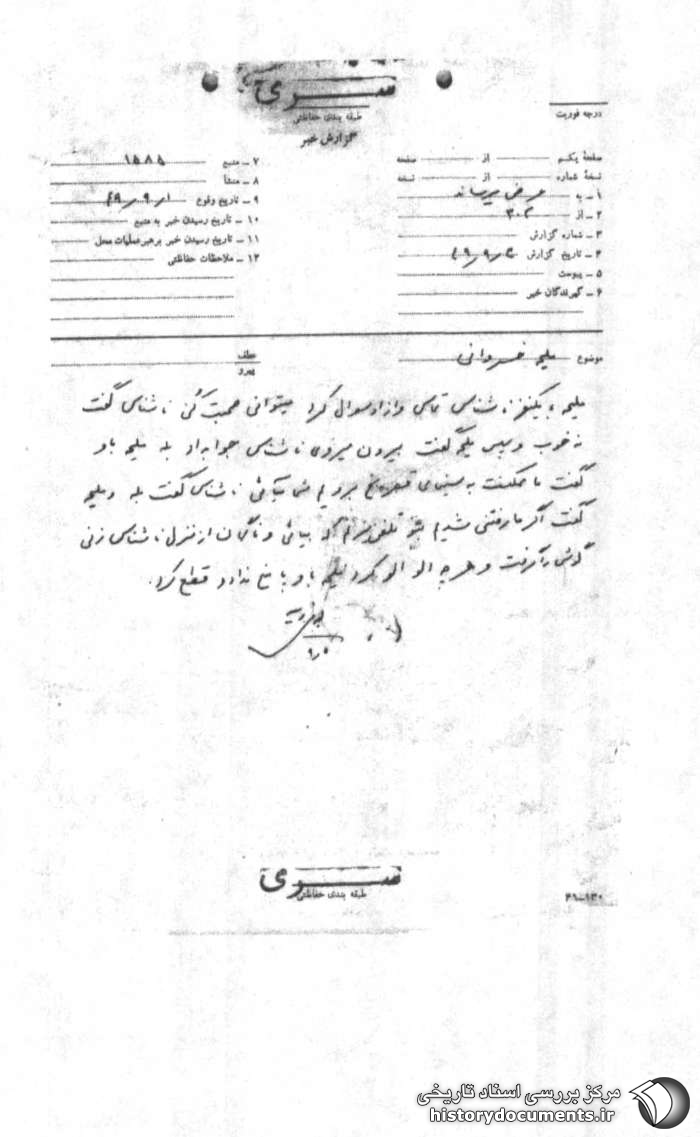 سری
طبقه بندی حفاظتی
گزارش خبر
درجه فوریت
صفحهٔ یکم از صفحه
نسخهٔ شماره از نسخه
۱ ـ به عرض میرساند
۲ ـ از ۳۰۲
۳ ـ شماره گزارش
۴ ـ تاریخ گزارش
۵ ـ پیوست
۶ ـ گیرندگان خبر
۷ ـ منبع ۱۵۸۵
۸ ـ منشأ
۹ ـ تاریخ وقوع
۱۰ ـ تاریخ رسیدن خبر به منبع
۱۱ ـ تاریخ رسیدن خبر برهبر عملیات محل
۱۲ ـ ملاحظات حفاظتی
موضوع ملیحه خسروانی
عطف
پیرو
ملیحه با یکنفر ناشناس تماس و از او سوال کرد میتوانی صحبت کنی ناشناس گفت
نه خوب و سپس ملیحه گفت بیرون میروی ناشناس جواب داد بله ملیحه باو
گفت ما ممکنست به سینمای برویم نمی‌آئی ناشناس گفت بله و ملیحه
گفت اگر ما رفتنی شدیم بتو تلفن میزنم که بیائی و ناگهان از منزل ناشناس زنی
گوشی را گرفت و هرچه الو الو کرد ملیحه باو پاسخ نداد و قطع کرد.
سری
طبقه بندی حفاظتی
مرکز بررسی اسناد تاریخی
historydocuments.ir